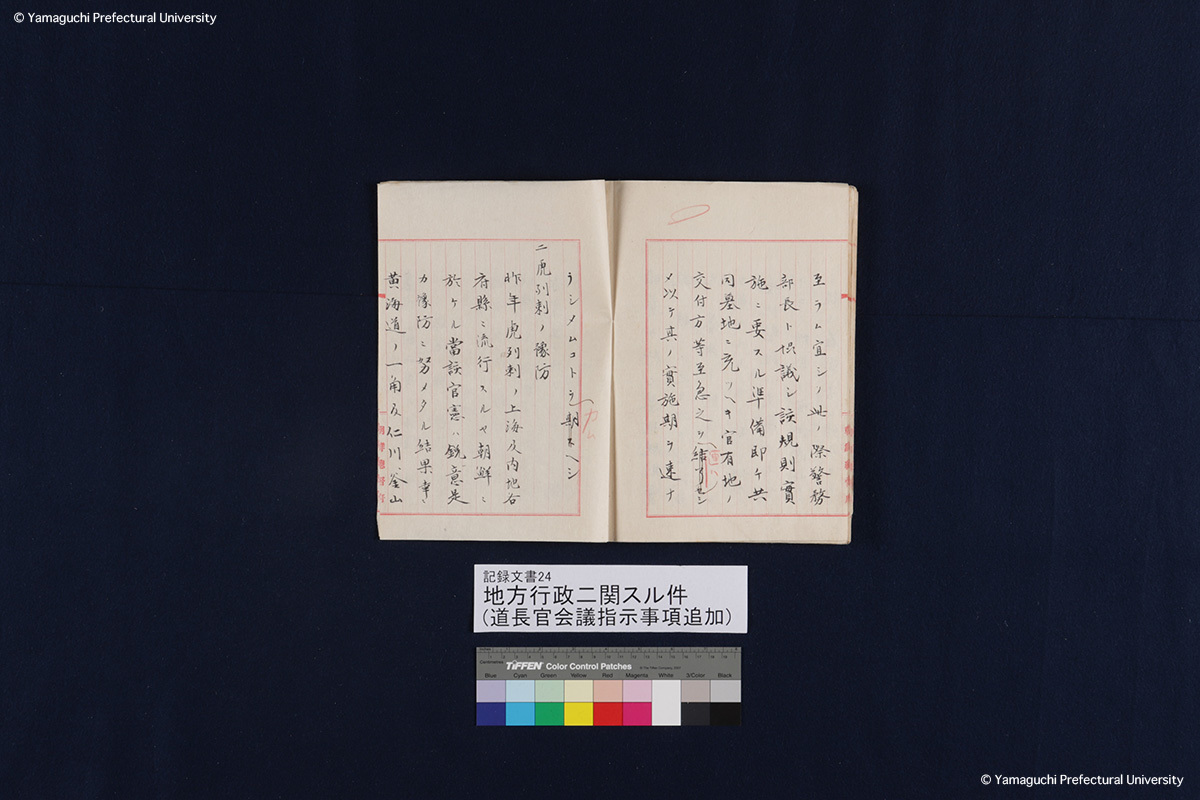 © Yamaguchi Prefectural University
至ラム宜シク此ノ際警務
部長ト協議シ該規則實
施ニ要スル準備即チ共
同墓地ニ充ツヘキ官有地ノ
交付方等至急之ヲ
メ以テ其ノ實施期ヲ違ナ
ラシメムコトヲ期スヘシ
カム
二虎列刺ノ豫防
昨年虎列刺ノ上海及内地各
府縣ニ流行スルヤ朝鮮ニ
於ケル當該官憲ハ鋭意是
カ豫防ニ努メタル結果幸ニ
黄海道ノ一角及仁川釜山
記録文書24
地方行政二関スル件
(道長官会議指示事項追加)
Centimetres
TIFFEN Color Control Patches
Blue Cyan Green Yellow Red Magenta White 3/Color Black
© Yamaguchi Prefectural University